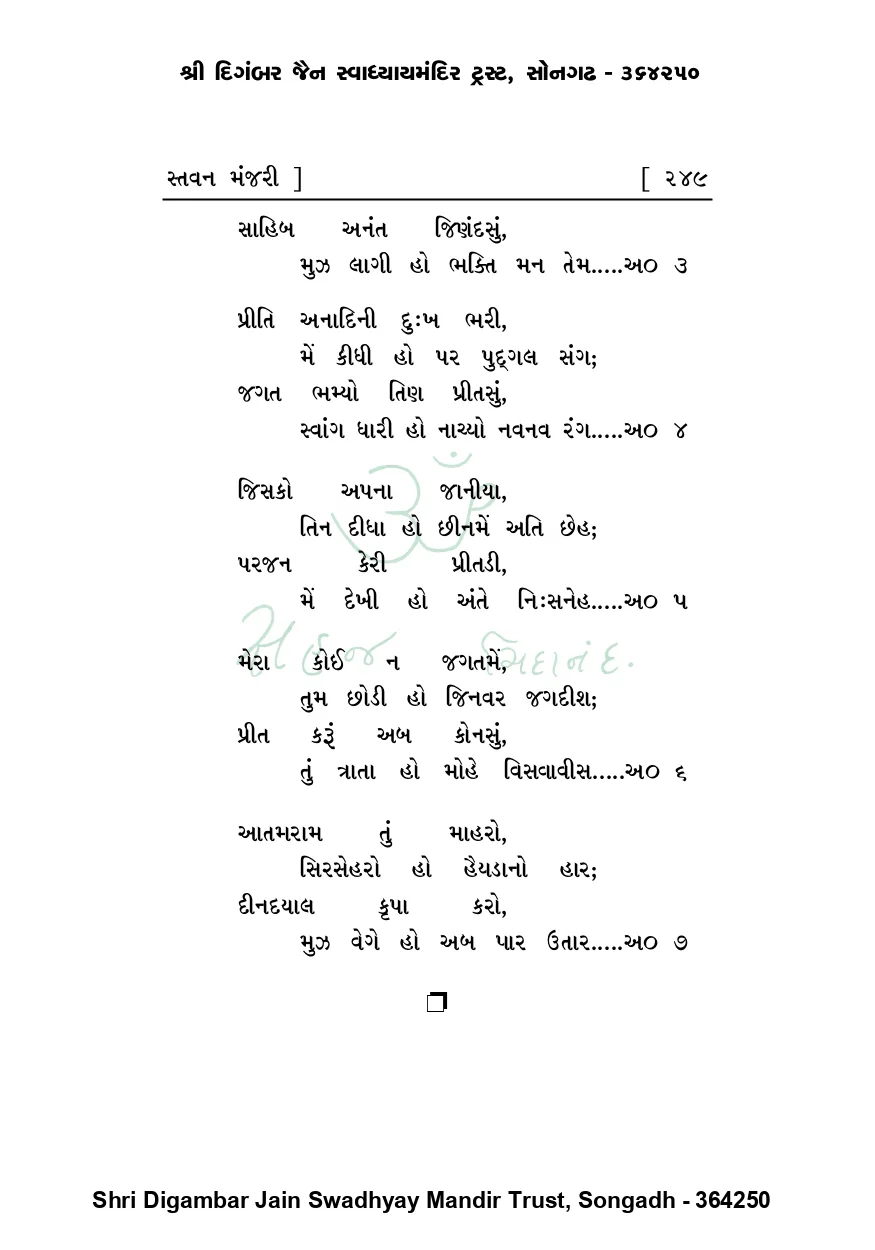 શ્રી દિગંબર જૈન સ્વાધ્યાયમંદિર ટ્રસ્ટ, સોનગઢ - ૩૬૪૨૫૦
સ્તવન મંજરી ] [ ૨૪૯
સાહિબ અનંત જિણંદસું,
મુઝ લાગી હો ભક્તિ મન તેમ.....અ૦ ૩
પ્રીતિ અનાદિની દુઃખ ભરી,
મેં કીધી હો પર પુદ્ગલ સંગ;
જગત ભમ્યો તિણ પ્રીતસું,
સ્વાંગ ધારી હો નાચ્યો નવનવ રંગ.....અ૦ ૪
જિસકો અપના જાનીયા,
તિન દીધા હો છીનમેં અતિ છેહ;
પરજન કેરી પ્રીતડી,
મેં દેખી હો અંતે નિઃસનેહ.....અ૦ ૫
મેરા કોઈ ન જગતમેં,
તુમ છોડી હો જિનવર જગદીશ;
પ્રીત કરૂં અબ કોનસું,
તું ત્રાતા હો મોહે વિસવાવીસ.....અ૦ ૬
આતમરામ તું માહરો,
સિરસેહરો હો હૈયડાનો હાર;
દીનદયાલ કૃપા કરો,
મુઝ વેગે હો અબ પાર ઉતાર.....અ૦ ૭
ૐ
સહજ ચિદાનંદ.
Shri Digambar Jain Swadhyay Mandir Trust, Songadh - 364250